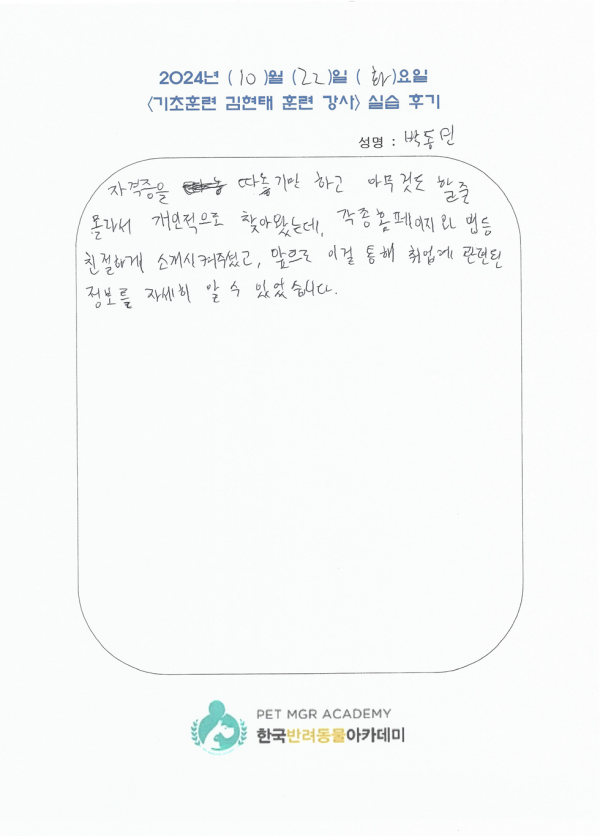 2024년 (10)월 (22)일 (화)요일
<기초훈련 김현태 훈련 강사> 실습 후기
성명 : 박동민
자격증을 따놓기만 하고 아무것도 할줄
몰라서 개인적으로 찾아왔는데, 각종홈페이지와 앱등
친절하게 소개시켜주셨고, 앞으로 이걸 통해 취업에 관련된
정보를 자세히 알 수 있었습니다.
PET MGR ACADEMY
한국반려동물아카데미